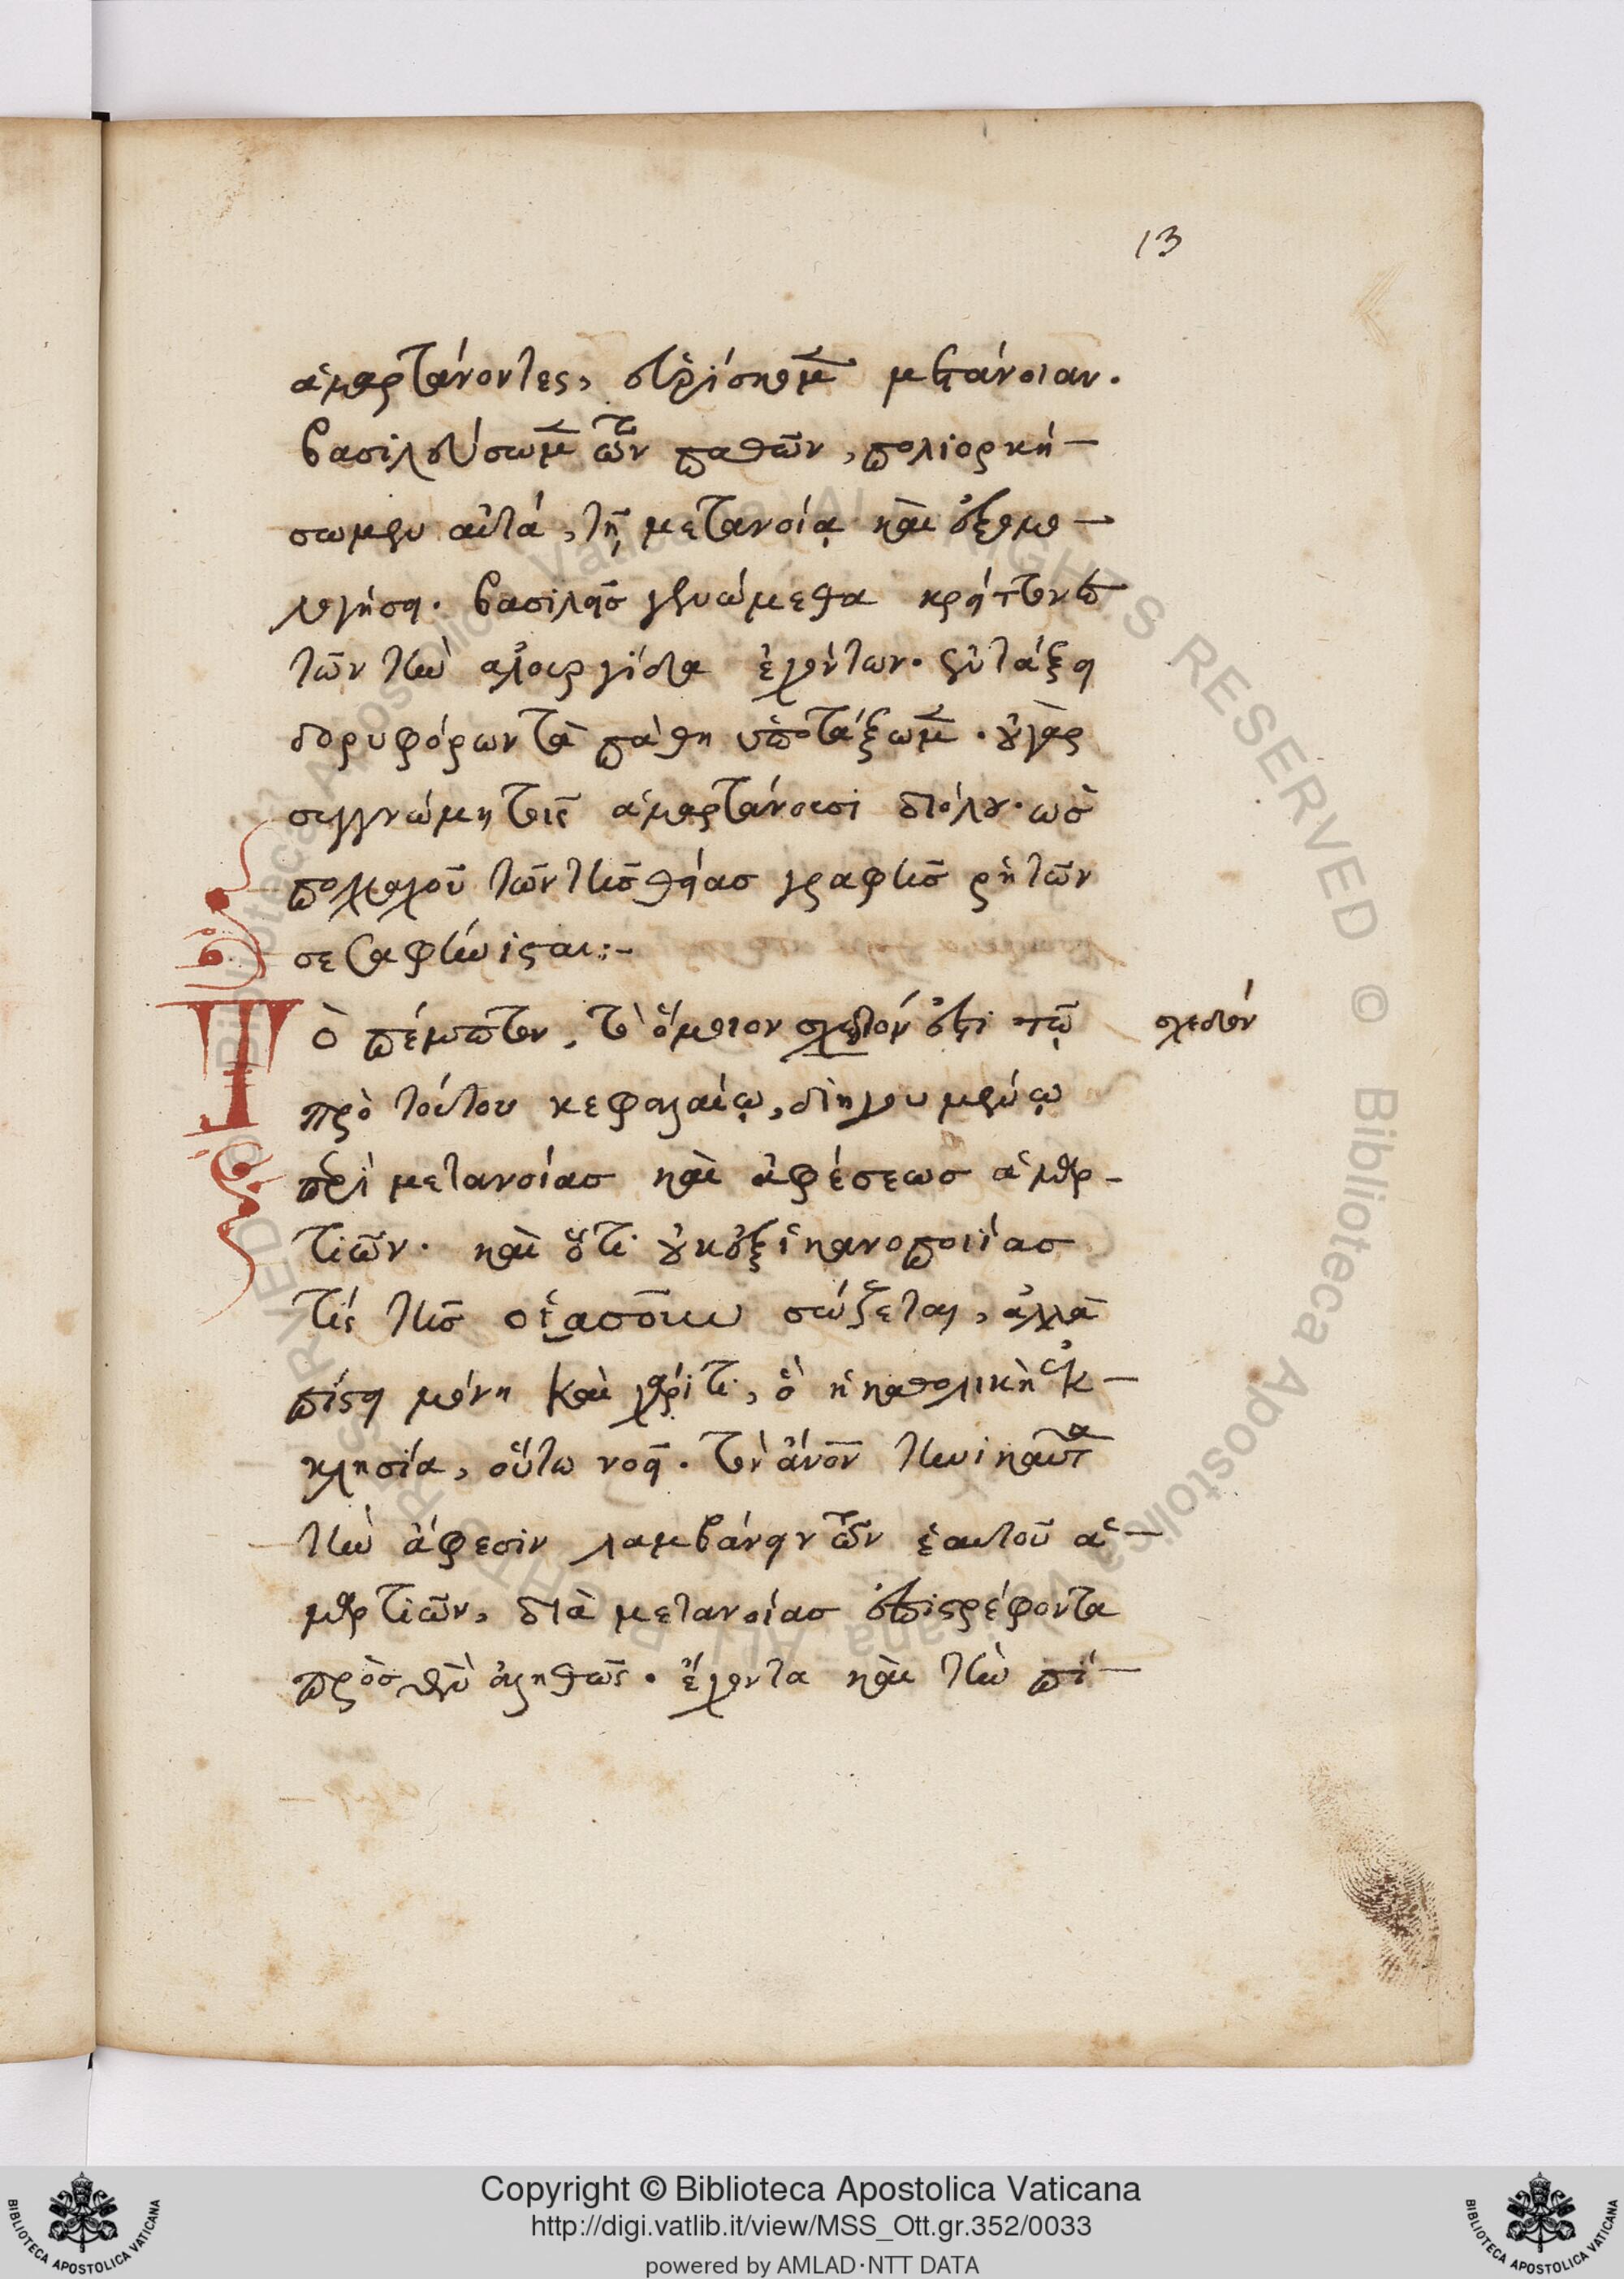 13
ἁμαρτάνοντες, εὑρίσκομεν μετάνοιαν.
βασιλεύσωμεν τῶν παθῶν, πολιορκή-
σωμεν αὐτά, τῇ μετανοίᾳ καὶ ἐξομο-
λογήσει. βασιλεῖς γενώμεθα κρείττονες
τῶν τὴν ἁλουργίδα ἐχόντων. εὐτάξει
δορυφόρων τὰ πάθη ὑποτάξωμεν. οὐ γὰρ
συγγνώμη τοῖς ἁμαρτάνουσι διόλου. ὡς
πολλαχοῦ τῶν τῆς θείας γραφῆς ῥητῶν
σεσαφήνισται:-
Τὸ πέμπτον, τὸ ὅμοιον σχεδὸν ἐστὶ τῷ
σχεδόν
πρὸ τούτου κεφαλαίῳ, διηγουμένῳ
περὶ μετανοίας καὶ ἀφέσεως ἁμαρ-
τιῶν. καὶ ὅτι οὐκ ἐξ ἱκανοποιίας
τίς τῆς οἱασοῦν σώζεται, ἀλλὰ
πίστει μόνῃ καὶ χάριτι, ὃ ἡ καθολικὴ ἐκ-
κλησία, οὕτω νοεῖ. τὸν ἄνον τηνικαῦτα
τὴν ἄφεσιν λαμβάνειν τῶν ἑαυτοῦ ἁ-
μαρτιῶν, διὰ μετανοίας ἐπιστρέφοντα
πρὸς θν̀ ἀληθῶς. ἔχοντα καὶ τὴν πί-
Copyright © Biblioteca Apostolica Vaticana
http://digi.vatlib.it/view/MSS_Ott.gr.352/0033
powered by AMLAD·NTT DATA
BIBLIOTECA APOSTOLICA VATICANA
BIBLIOTECA APOSTOLICA VATICANA